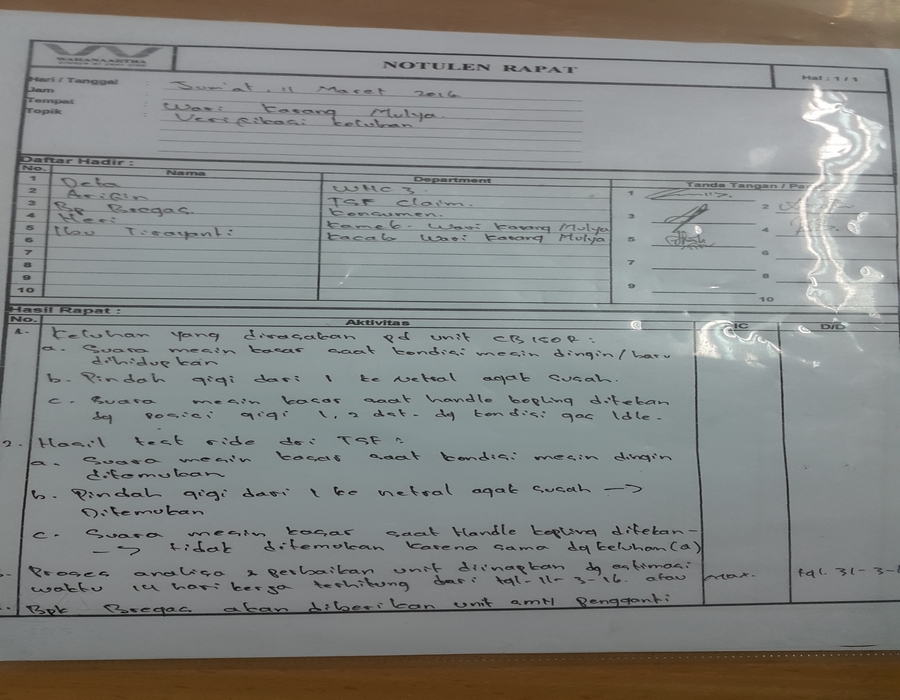 WAHANAARTHA
NOTULEN RAPAT
Hal : 1 / 1
Hari / Tanggal : Jum'at, 11 Maret 2016
Jam
Tempat : Wari Karang Mulya.
Topik : Verifikasi keluhan
Daftar Hadir :
No. Nama Department Tanda Tangan / Par
1 Deta WMC 3. 1
2 Arifin TSF Claim. 2
3 Bp Bregas. Konsumen. 3
4 Heri Kameb. Wari Karang Mulya 4
5 Ibu Tirayanti Kacab Wari Karang Mulya 5
6 6
7 7
8 8
9 9
10 10
Hasil Rapat :
No. Aktivitas IC D/D
1. Keluhan yang dirasakan pd unit CB150R :
a. Suara mesin kasar saat kondisi mesin dingin / baru
dihidupkan
b. Pindah gigi dari 1 ke Netral agak susah.
c. Suara mesin kasar saat handle kopling ditekan
dg posisi gigi 1, 2 dst. dg kondisi gas Idle.
2. Hasil test ride dri TSF :
a. Suara mesin kasar saat kondisi mesin dingin
ditemukan
b. Pindah gigi dari 1 ke netral agak susah -->
Ditemukan
c. Suara mesin kasar saat Handle kopling ditekan -
--> tidak ditemukan karena sama dg keluhan (a)
Proses analisa & perbaikan unit diinapkan dg estimasi
waktu 14 hari kerja terhitung dari tgl-11-3-16. atau max. tgl. 31-3-1
Bpk Bregas akan diberikan unit smh Pengganti